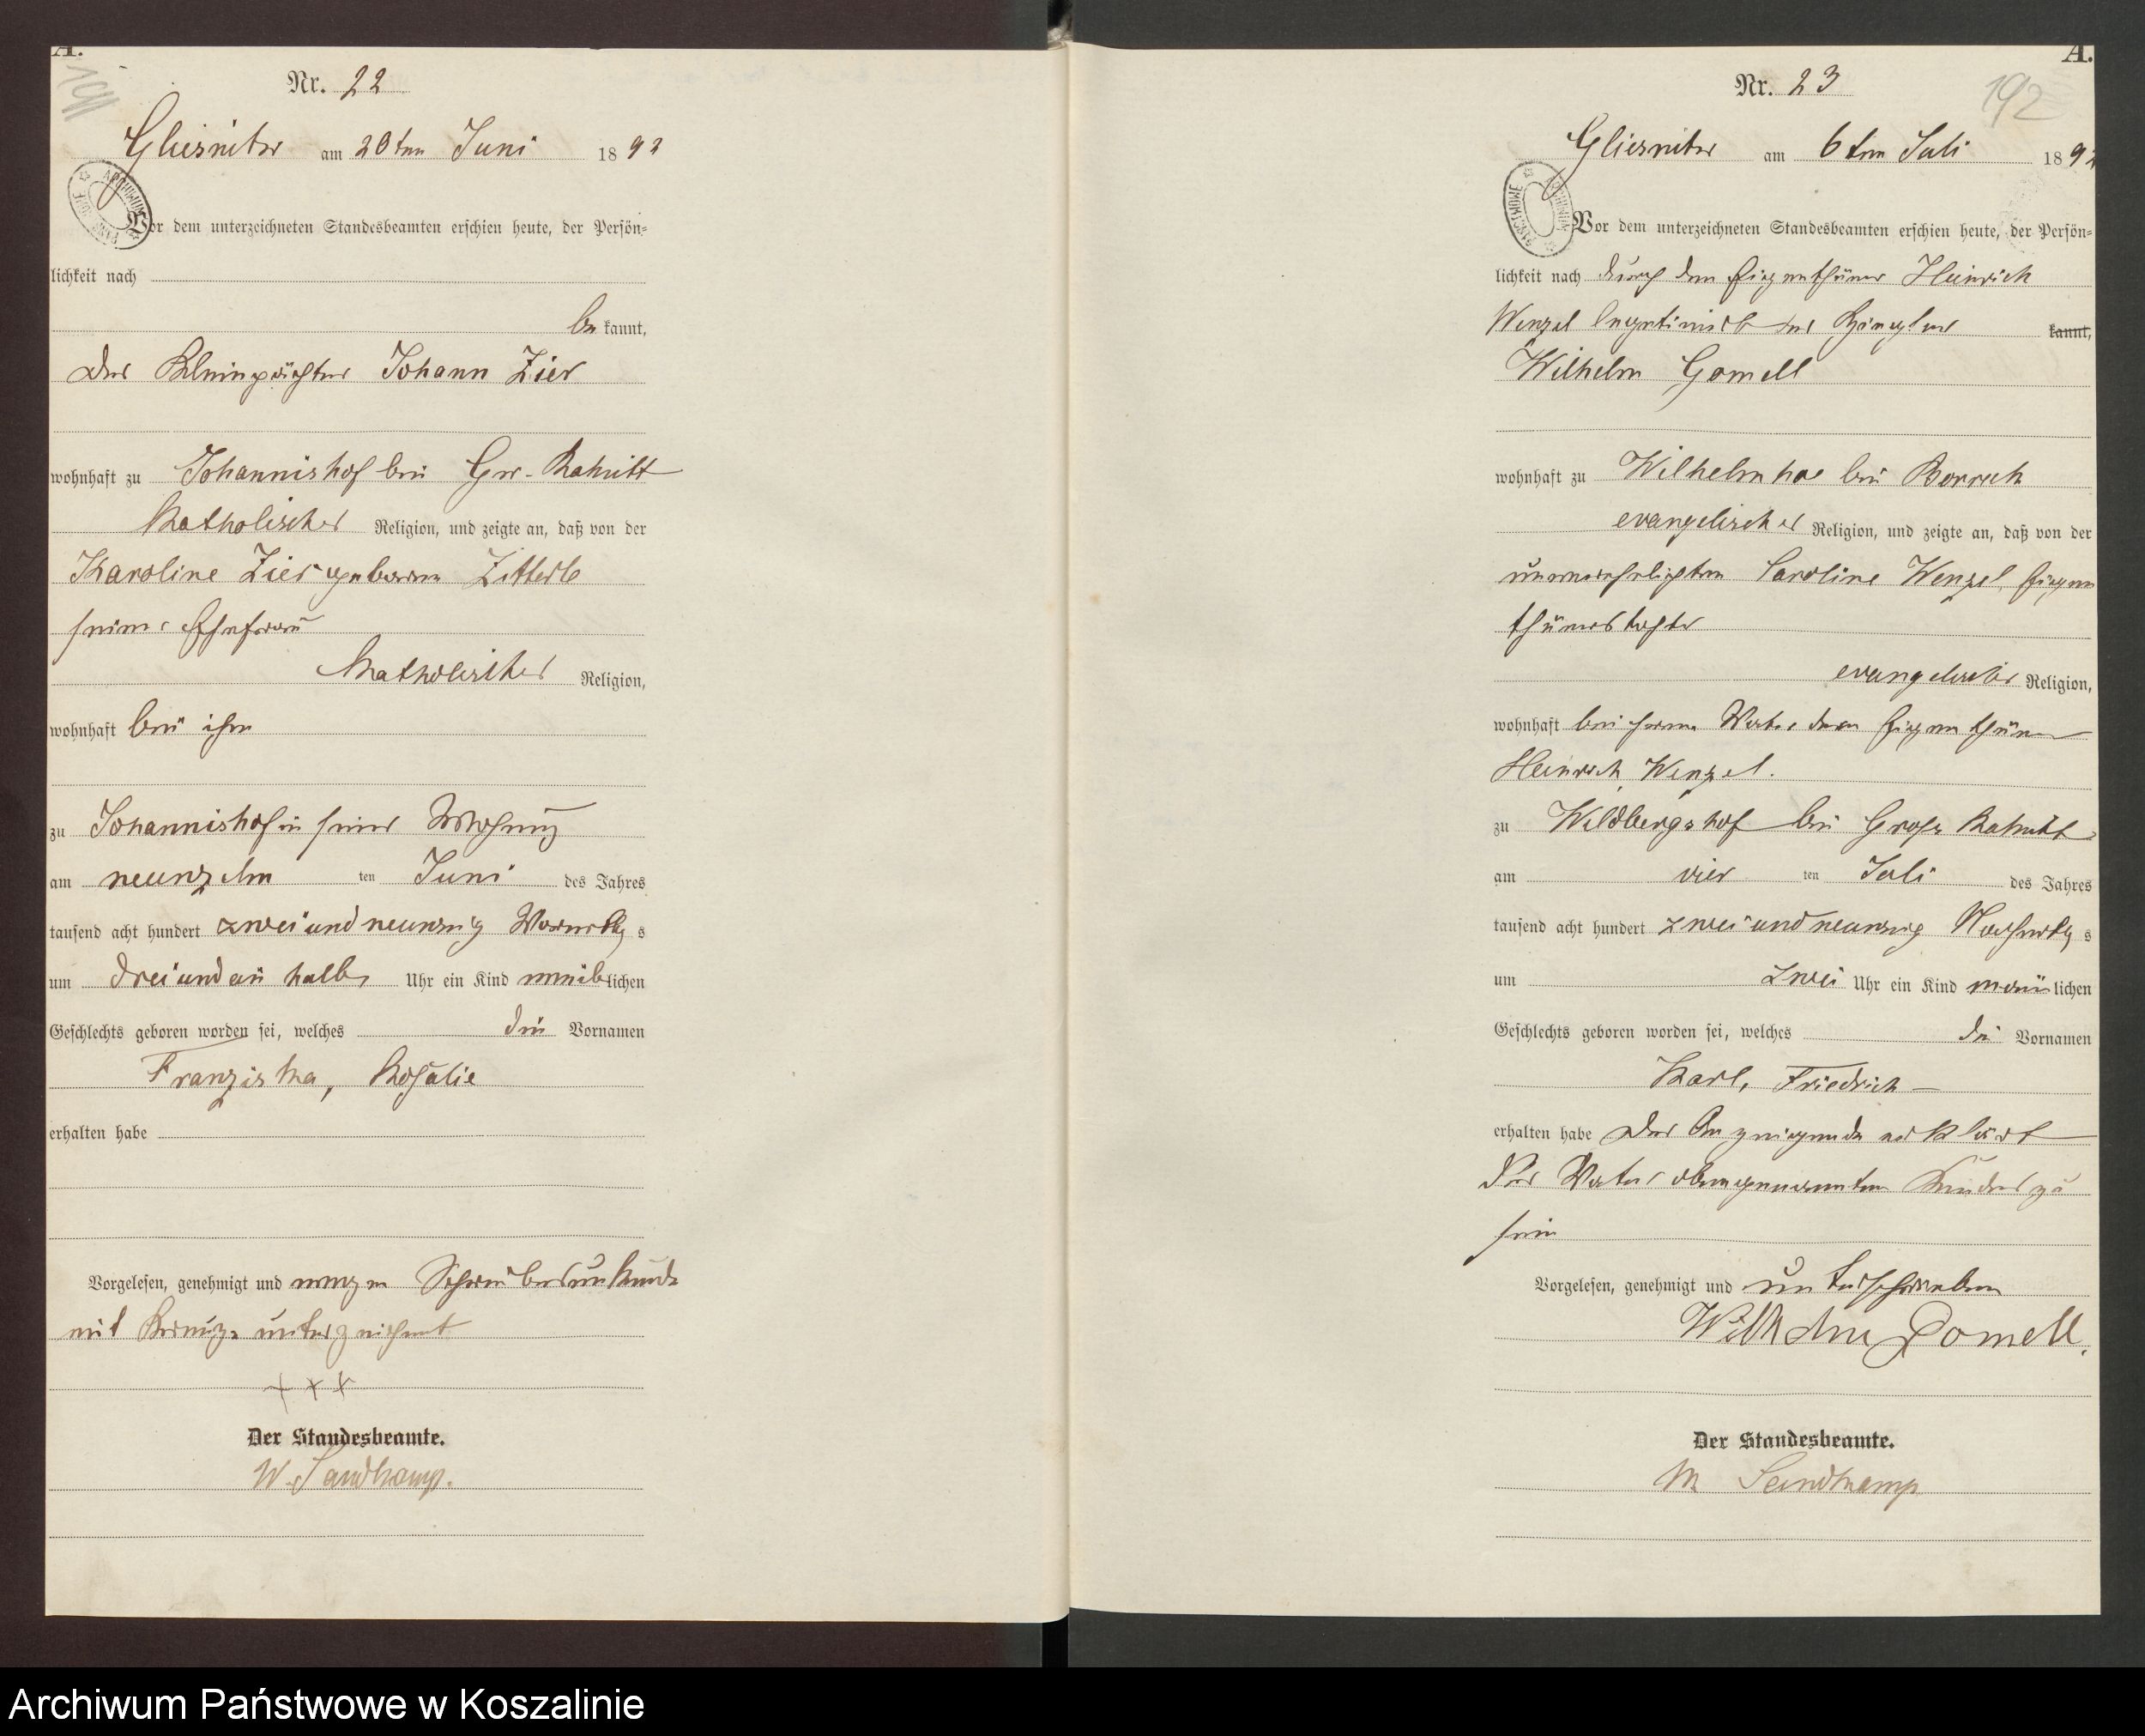 A.
191
Nr. 22
Gliesnitz am 20ten Juni 1892
Vor dem unterzeichneten Standesbeamten erschien heute, der Persön=
lichkeit nach
be kannt,
der Kleinpächter Johann Zier
wohnhaft zu Johannishof bei Gr. Katnitt
Katholischer Religion, und zeigte an, daß von der
Karoline Zier geborenen
seiner Ehefrau
Katholischer Religion,
wohnhaft bei ihm
zu Johannishof in seiner Wohnung
am neunzehn ten Juni des Jahres
tausend acht hundert zwei und neunzig Vormittags
um drei und ein halb Uhr ein Kind weiblichen
Geschlechts geboren worden sei, welches die Vornamen
Franziska, Rosalie
erhalten habe
Vorgelesen, genehmigt und wegen Schreibensunkunde
mit Kreuze unterzeichnet
+ + +
Der Standesbeamte.
W. Sandkamp.
A.
192
Nr. 23
Gliesnitz am 6ten Juli 1892
Vor dem unterzeichneten Standesbeamten erschien heute, der Persön=
lichkeit nach durch den Eigenthümer Heinrich
Wenzel legitimirt der kannt,
Wilhelm Gomell
wohnhaft zu bei
evangelischer Religion, und zeigte an, daß von der
unverehelichten Caroline Wenzel, Eigen
thümerstochter
evangelischer Religion,
wohnhaft bei ihrem Vater dem Eigenthümer
Heinrich Wenzel.
zu Wildbergshof bei Groß Katnitt
am vier ten Juli des Jahres
tausend acht hundert zwei und neunzig Nachmittags
um zwei Uhr ein Kind männlichen
Geschlechts geboren worden sei, welches die Vornamen
Karl, Friedrich
erhalten habe Der Anzeigende erklärt
der Vater obengenannten Kindes zu
sein
Vorgelesen, genehmigt und unterschrieben
Wilhelm Gomell.
Der Standesbeamte.
W Sandkamp
Archiwum Państwowe w Koszalinie